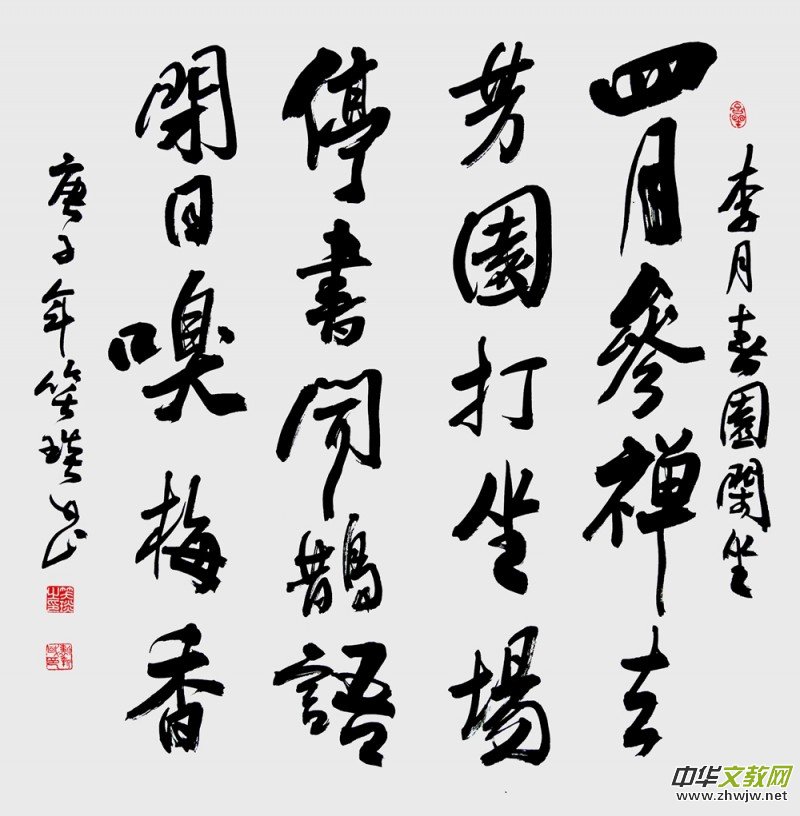 李月春園閑坐
四月参禅去
芳園打坐場
停書聞鵲語
閉目嗅梅香
庚子年笑琰
中华文教网
www.zhwjw.net